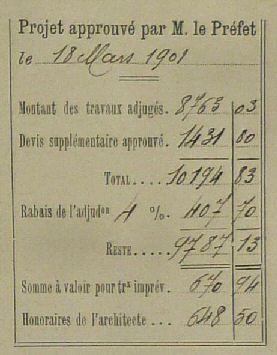 Projet approuvé par M. le Préfet
le 18 Mars 1901
Montant des travaux adjugés. 8763 03
Devis supplémentaire approuvé. 1431 80
TOTAL.... 10194 83
Rabais de l'adjudon 4 %. 407 70
RESTE.... 9787 13
Somme à valoir pour trx imprév. 670 94
Honoraires de l'architecte... 648 50